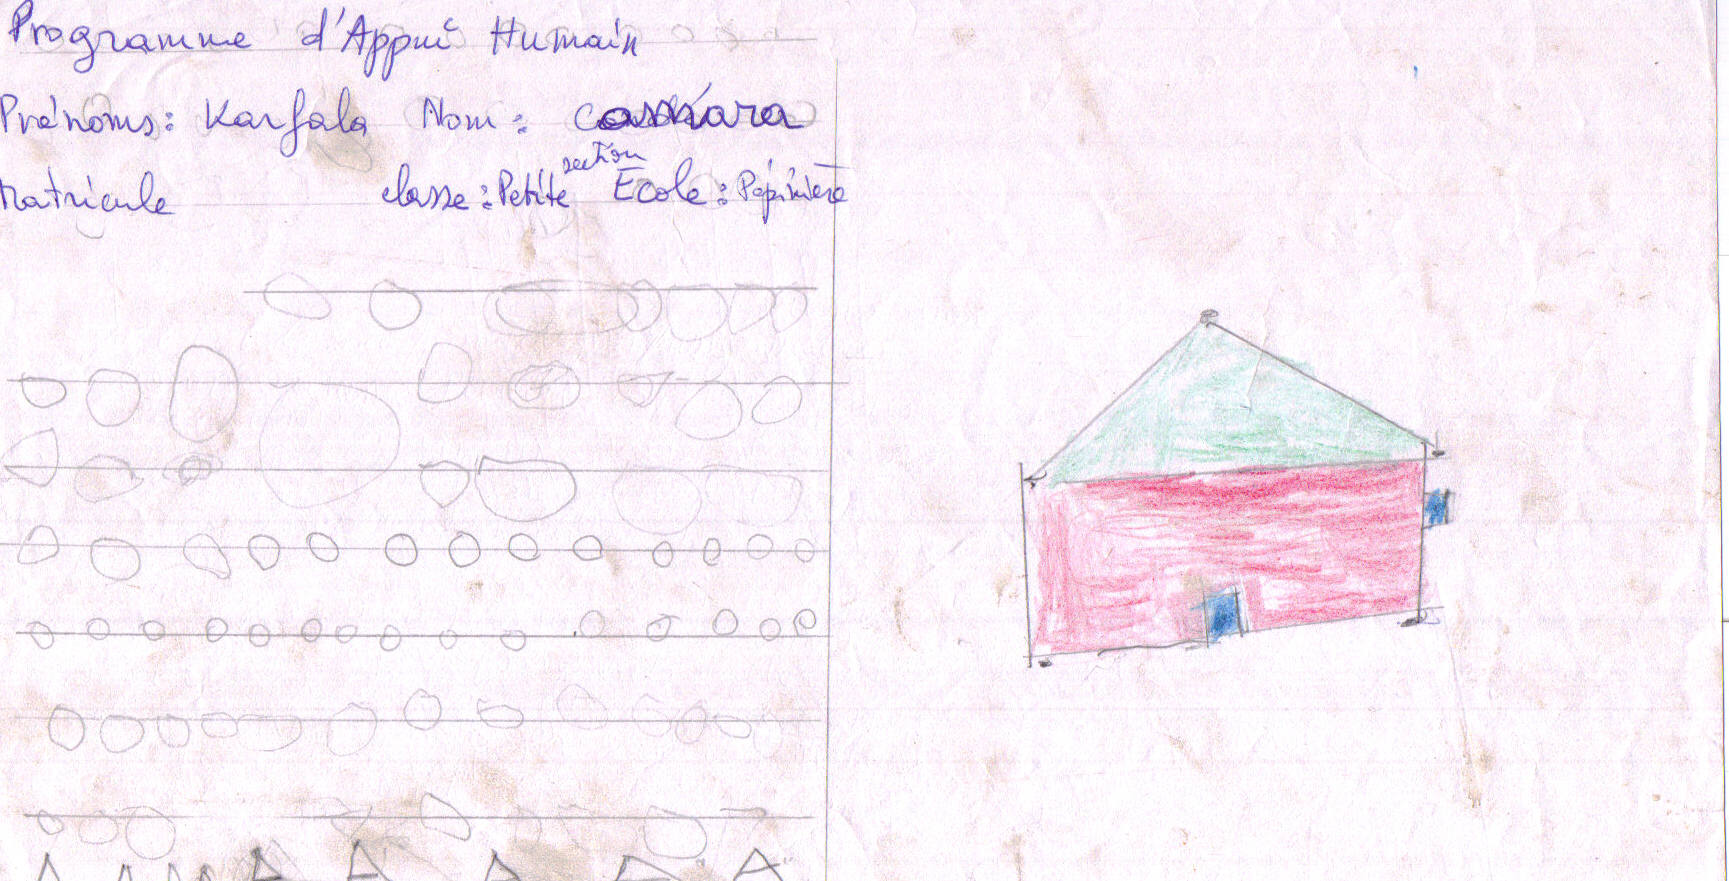 Programme d'Appui Humain
Prénoms: Karfala Nom: Camara
Matricule classe: Petite section Ecole: Pépinière
A A A A A